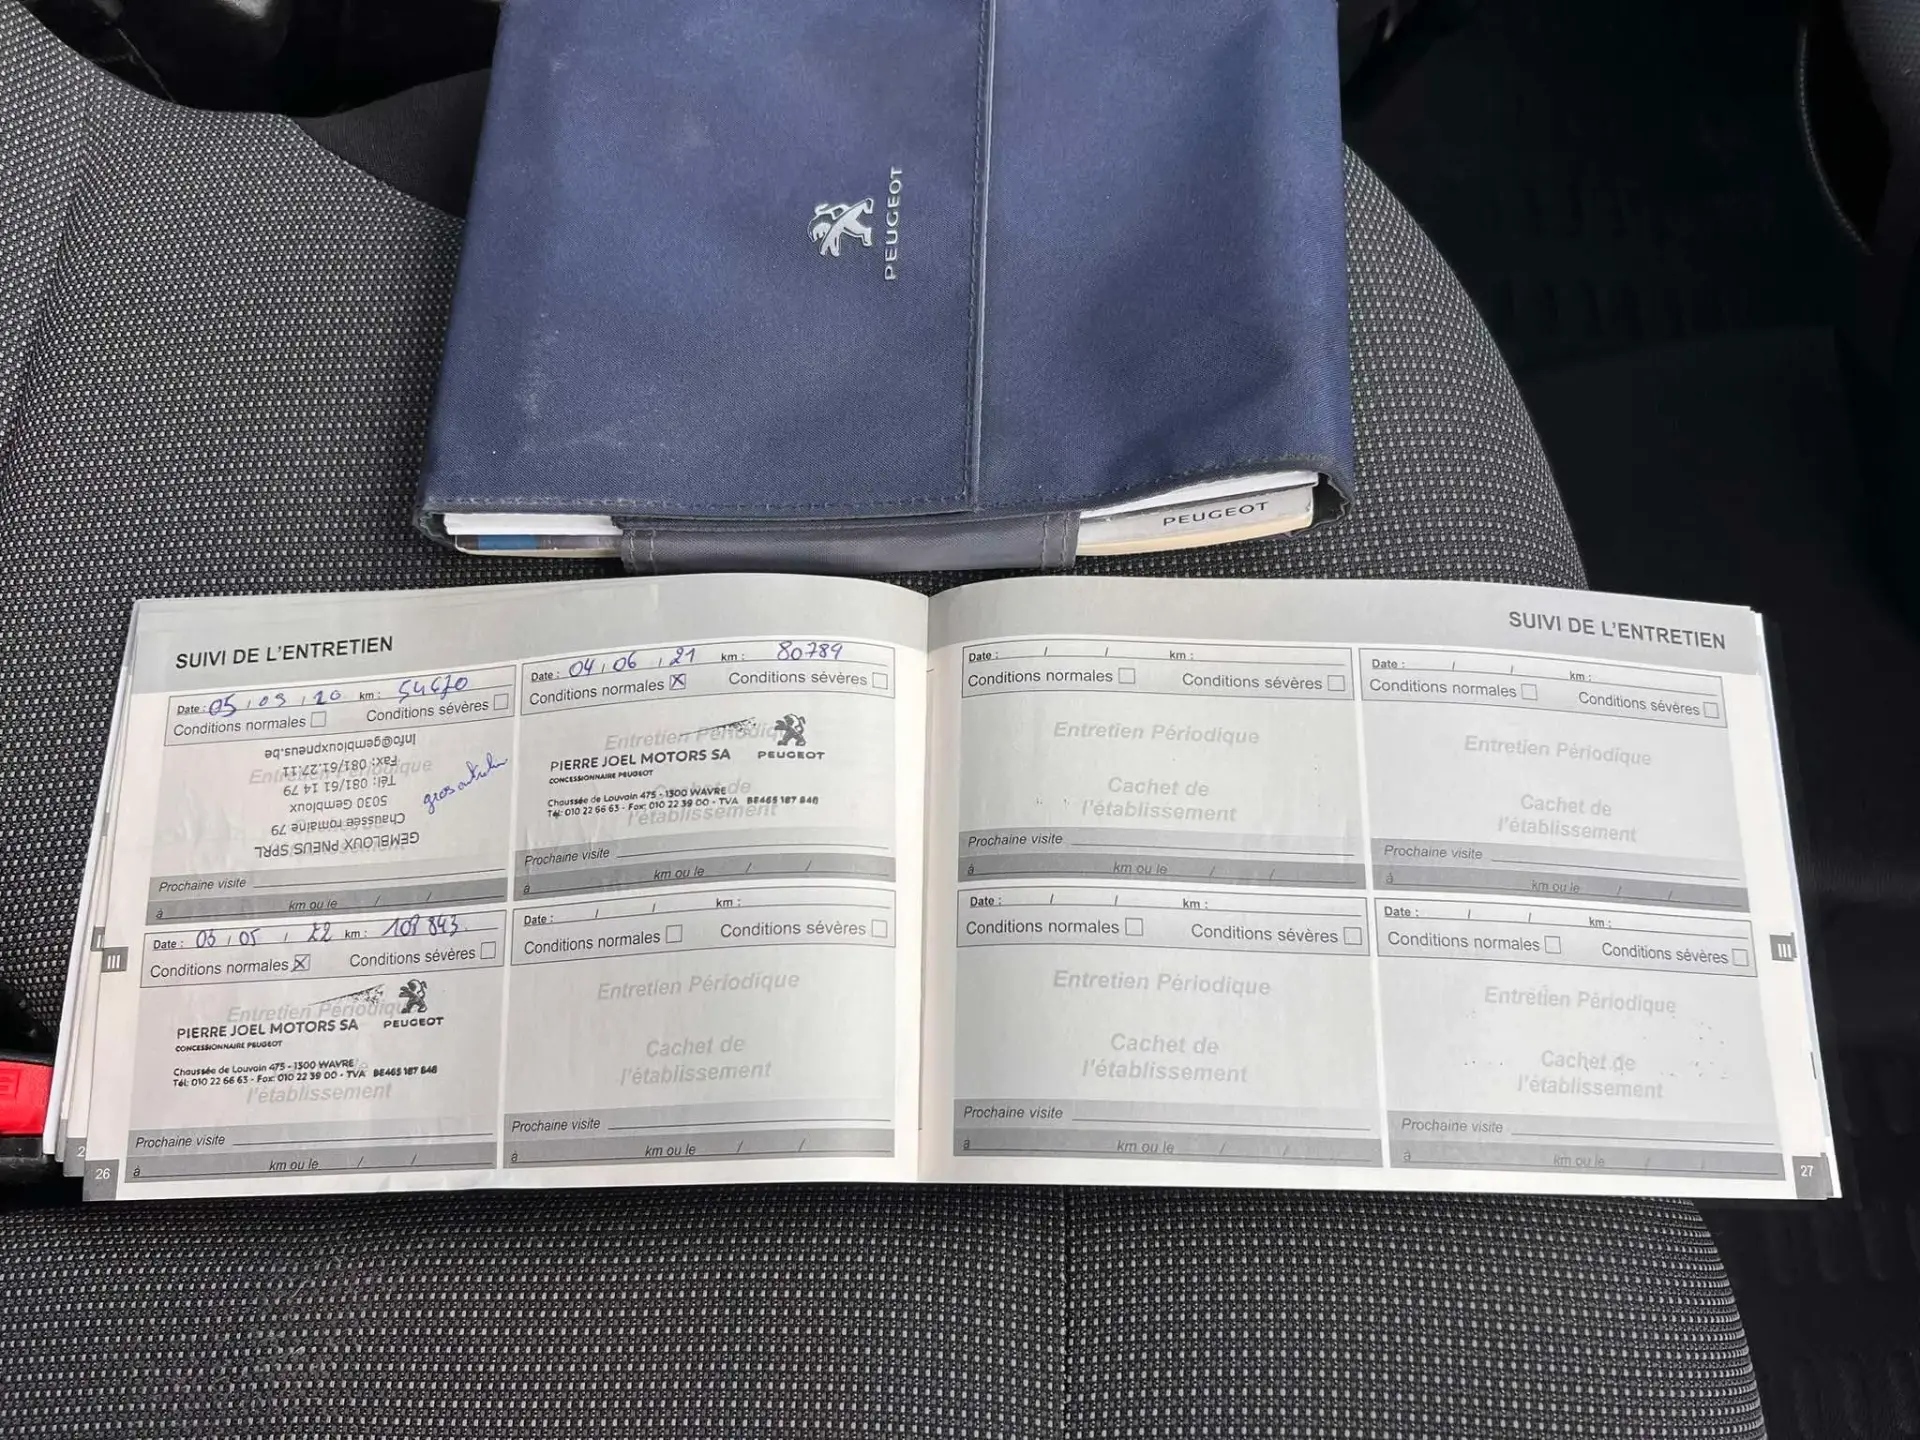 PEUGEOT
PEUGEOT
SUIVI DE L'ENTRETIEN
Date : 05 / 09 / 20 km : 54670
Conditions normales Conditions sévères
Entretien Périodique
GEMBLOUX PNEUS SPRL
Chaussée romaine 79
5030 Gembloux
Tél: 081/61 14 79
Fax: 081/61.27.11
Info@gemblouxpneus.be
gros entretien
Prochaine visite
à km ou le / /
Date : 04 / 06 / 21 km : 80789
Conditions normales X Conditions sévères
Entretien Périodique
Cachet de
l'établissement
PIERRE JOEL MOTORS SA PEUGEOT
CONCESSIONNAIRE PEUGEOT
Chaussée de Louvain 475 - 1300 WAVRE
Tél: 010 22 66 63 - Fax: 010 22 39 00 - TVA BE465 187 848
Prochaine visite
à km ou le / /
Date : 03 / 05 / 22 km : 108 843
Conditions normales X Conditions sévères
Entretien Périodique
PIERRE JOEL MOTORS SA PEUGEOT
CONCESSIONNAIRE PEUGEOT
Chaussée de Louvain 475 - 1300 WAVRE
Tél: 010 22 66 63 - Fax: 010 22 39 00 - TVA BE465 187 848
l'établissement
Prochaine visite
à km ou le / /
Date : / / km :
Conditions normales Conditions sévères
Entretien Périodique
Cachet de
l'établissement
Prochaine visite
à km ou le / /
III
26
SUIVI DE L'ENTRETIEN
Date : / / km :
Conditions normales Conditions sévères
Entretien Périodique
Cachet de
l'établissement
Prochaine visite
à km ou le / /
Date : / / km :
Conditions normales Conditions sévères
Entretien Périodique
Cachet de
l'établissement
Prochaine visite
à km ou le / /
Date : / / km :
Conditions normales Conditions sévères
Entretien Périodique
Cachet de
l'établissement
Prochaine visite
à km ou le / /
Date : / / km :
Conditions normales Conditions sévères
Entretien Périodique
Cachet de
l'établissement
Prochaine visite
à km ou le / /
III
27